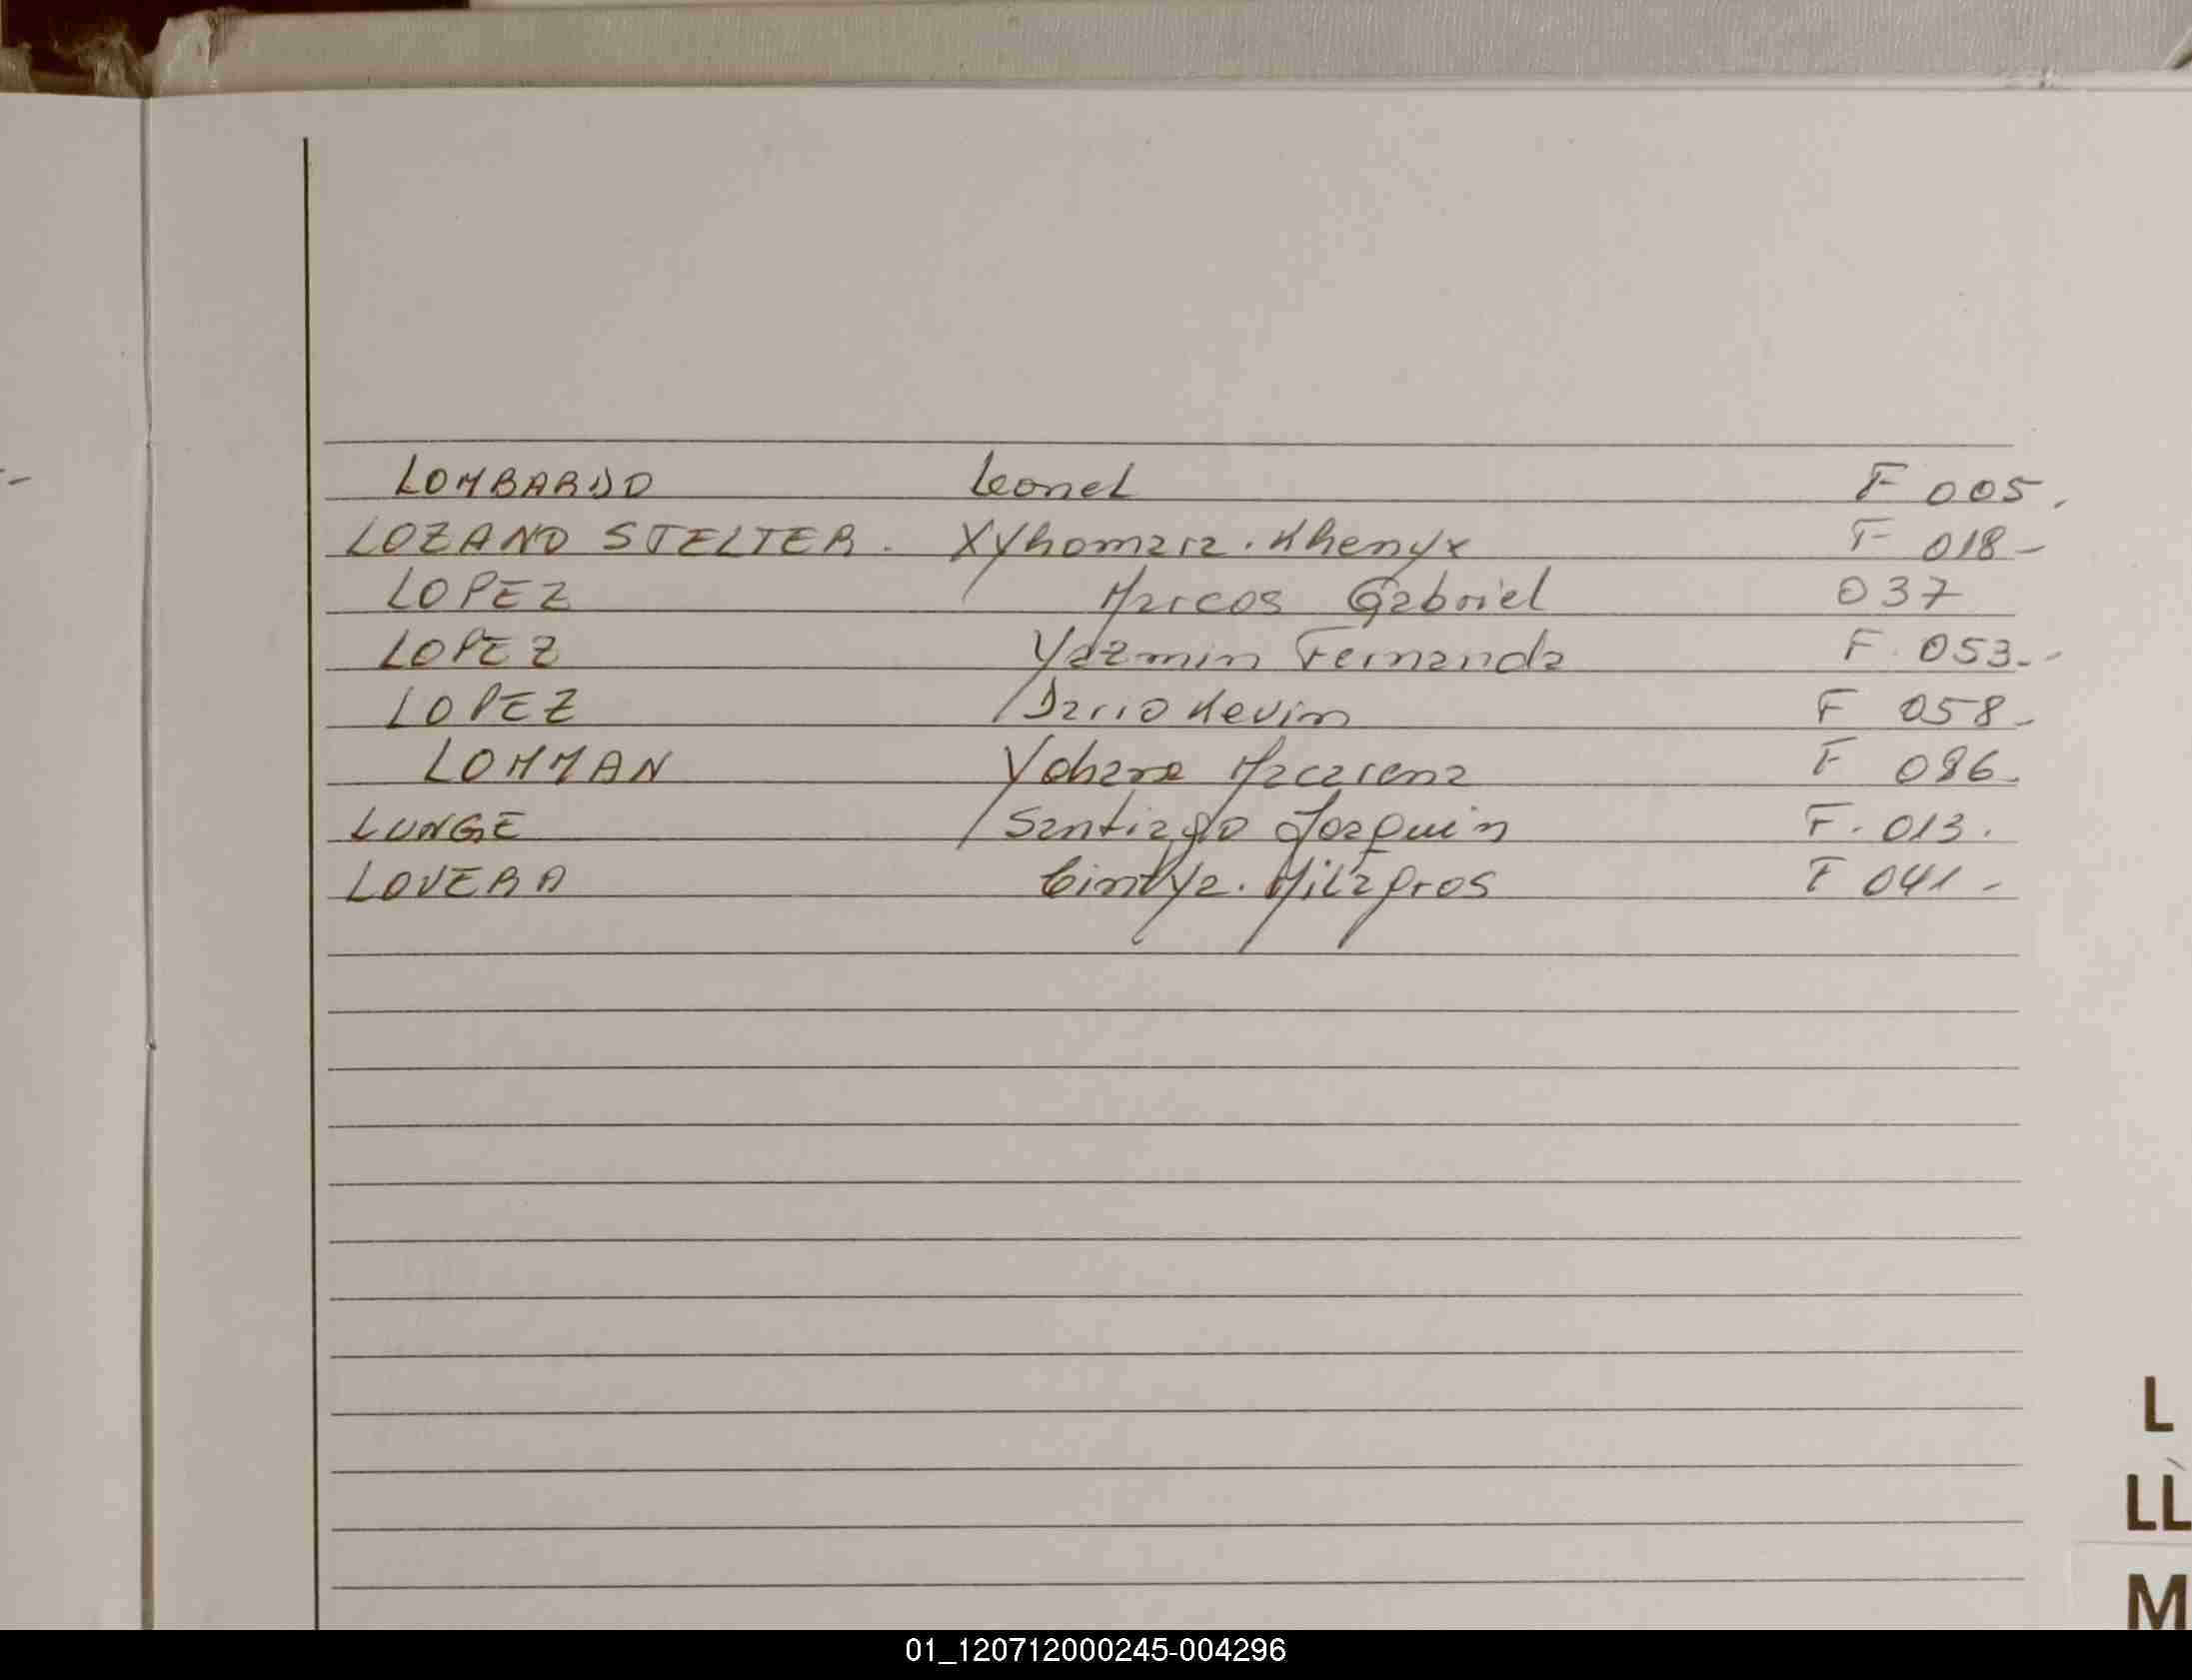 LOMBARDO Leonel F 005.
LOZANO STELTER. Xyhomara. Khenyx F 018-
LOPEZ Marcos Gabriel 037
LOPEZ Yazmin Fernanda F. 053.-
LOPEZ Dario Kevin F 058-
LOMMAN Yohana Macarena F 086.
LUNGE Santiago Joaquin F. 013.
LOVERA Cintya. Milagros F 041-
L
LL
M
01_120712000245-004296